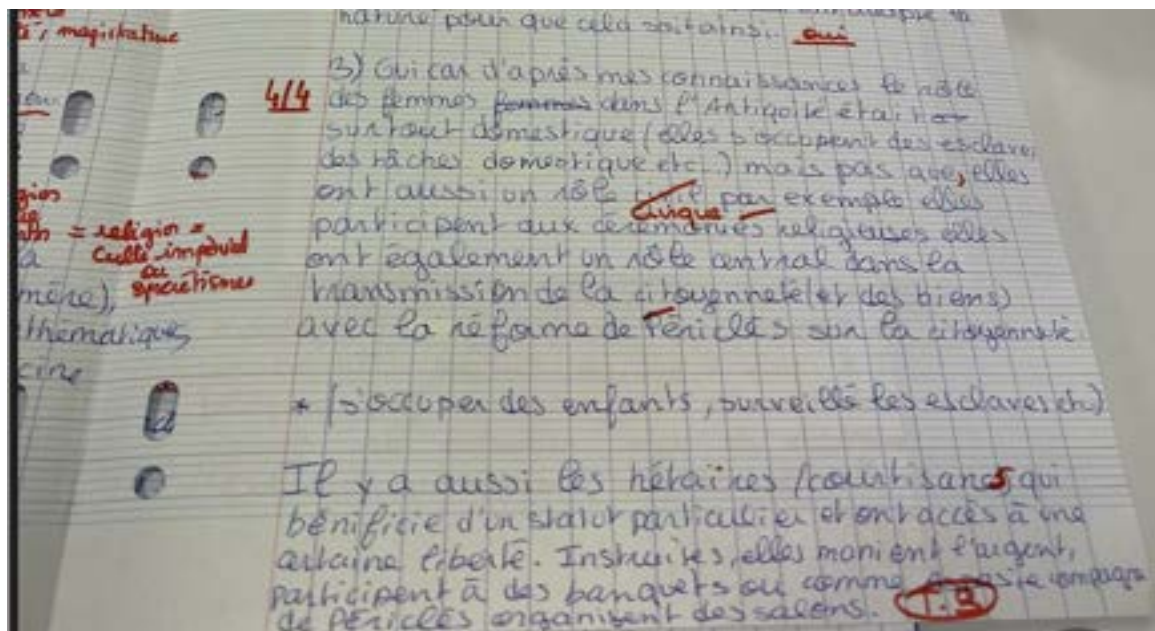 é, magistrature
nature pour que cela soit ainsi. oui
4/4
3) Oui car d'après mes connaissances le rôle
des femmes femmes dans l'Antiquité était
surtout domestique (elles s'occupent des esclaves
des tâches domestique etc.) mais pas que, elles
ont aussi un rôle civique par exemple elles
participent aux cérémonies religieuses elles
ont également un rôle central dans la
transmission de la citoyenneté (et des biens)
avec la réforme de Périclès sur la citoyenneté.
* (s'occuper des enfants, surveillé les esclaves etc.)
Il y a aussi les hétaïres (courtisanes, qui
bénificie d'un statut particulier et ont accès à une
certaine liberté. Instruites, elles manient l'argent,
participent à des banquets ou comme compagne
de Périclès organisent des salons. T.B
= religion =
Culte impérial
ou
syncrétismes
mère),
thematiques
cine